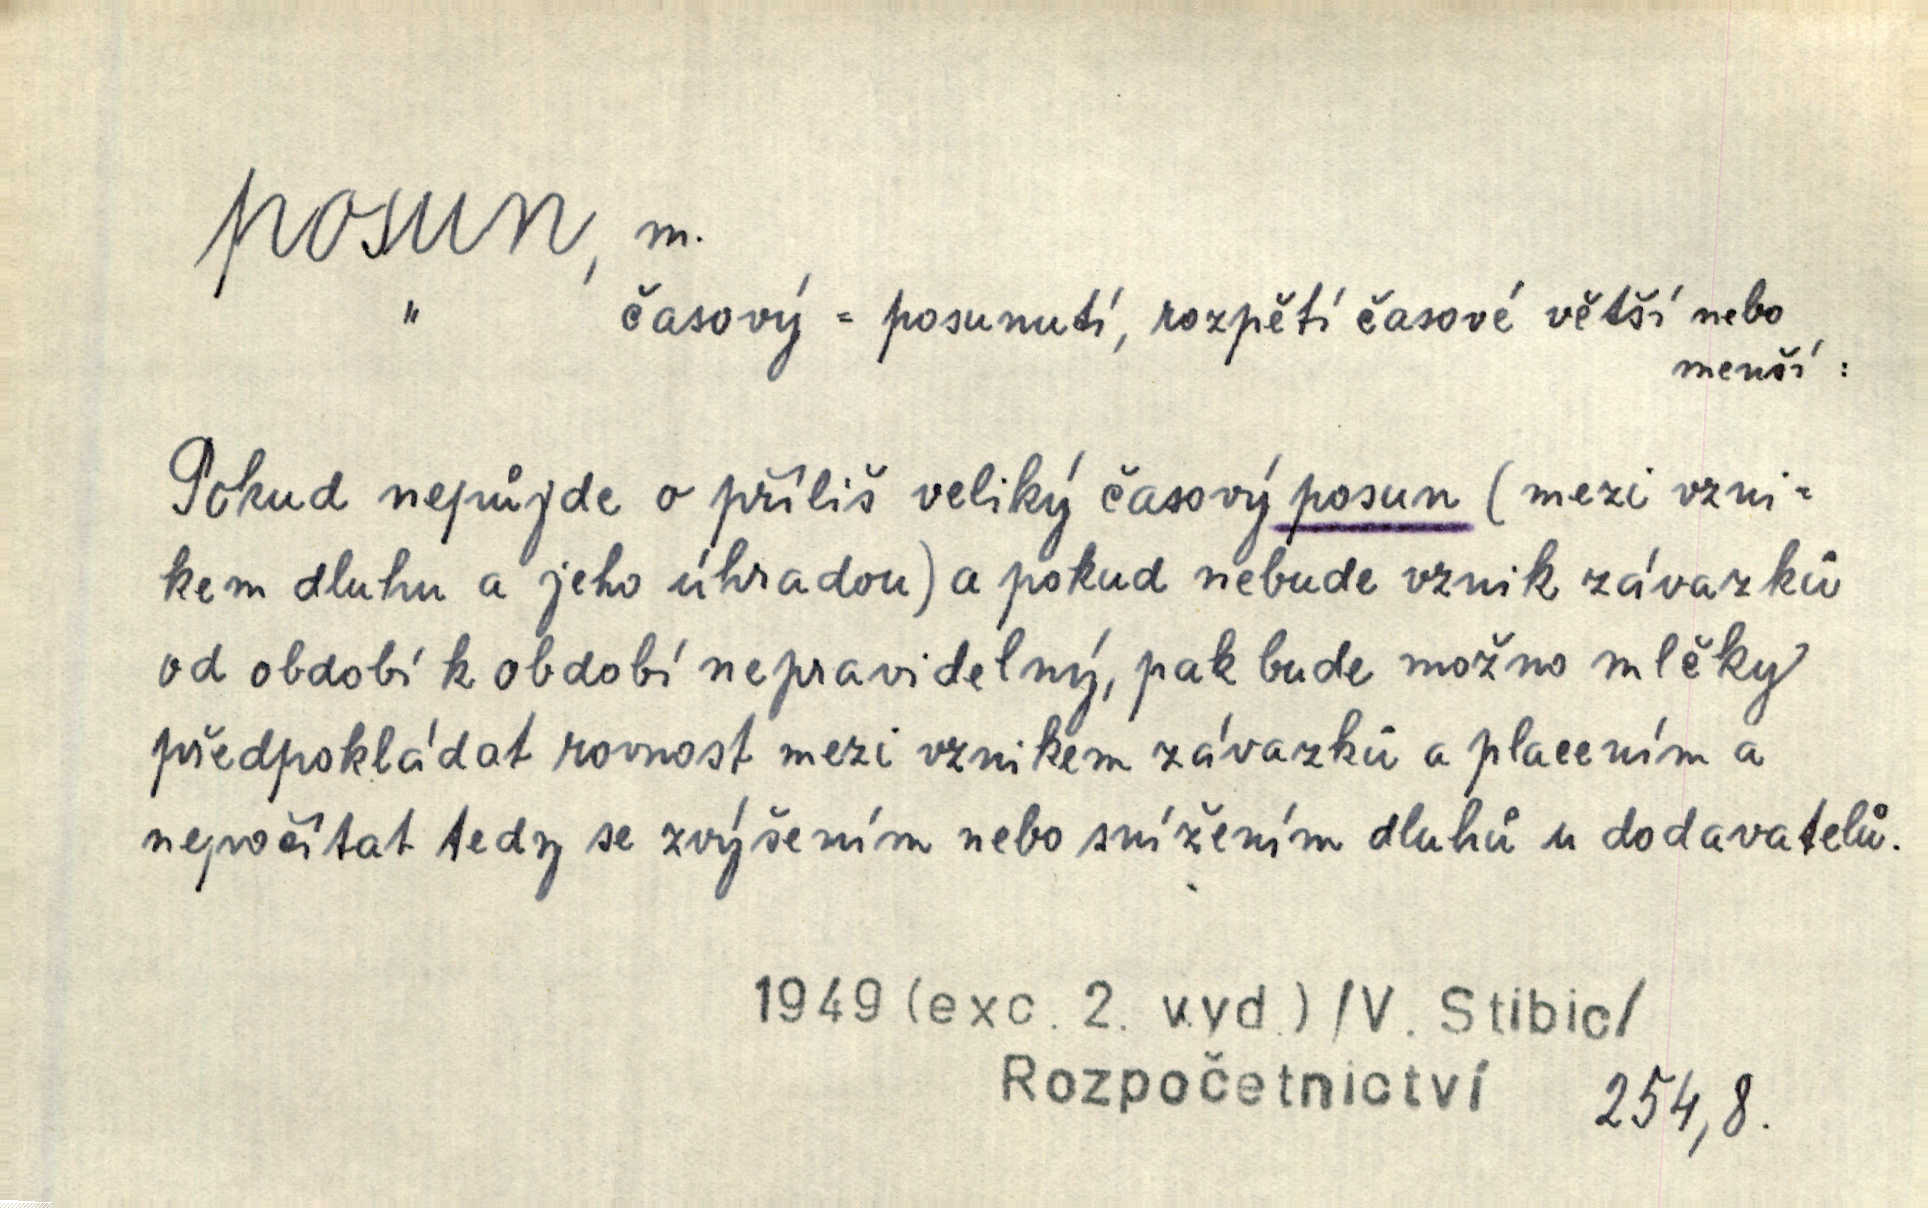 posun, m.
" časový = posunutí, rozpětí časové větší nebo
menší :
Pokud nepůjde o příliš veliký časový posun (mezi vzni=
kem dluhu a jeho úhradou) a pokud nebude vznik závazků
od období k období nepravidelný, pak bude možno mlčky
předpokládat rovnost mezi vznikem závazků a placením a
nepočítat tedy se zvýšením nebo snížením dluhů u dodavatelů.
1949 (exc. 2. vyd.) /V. Stibic/
Rozpočetnictví 254,8.